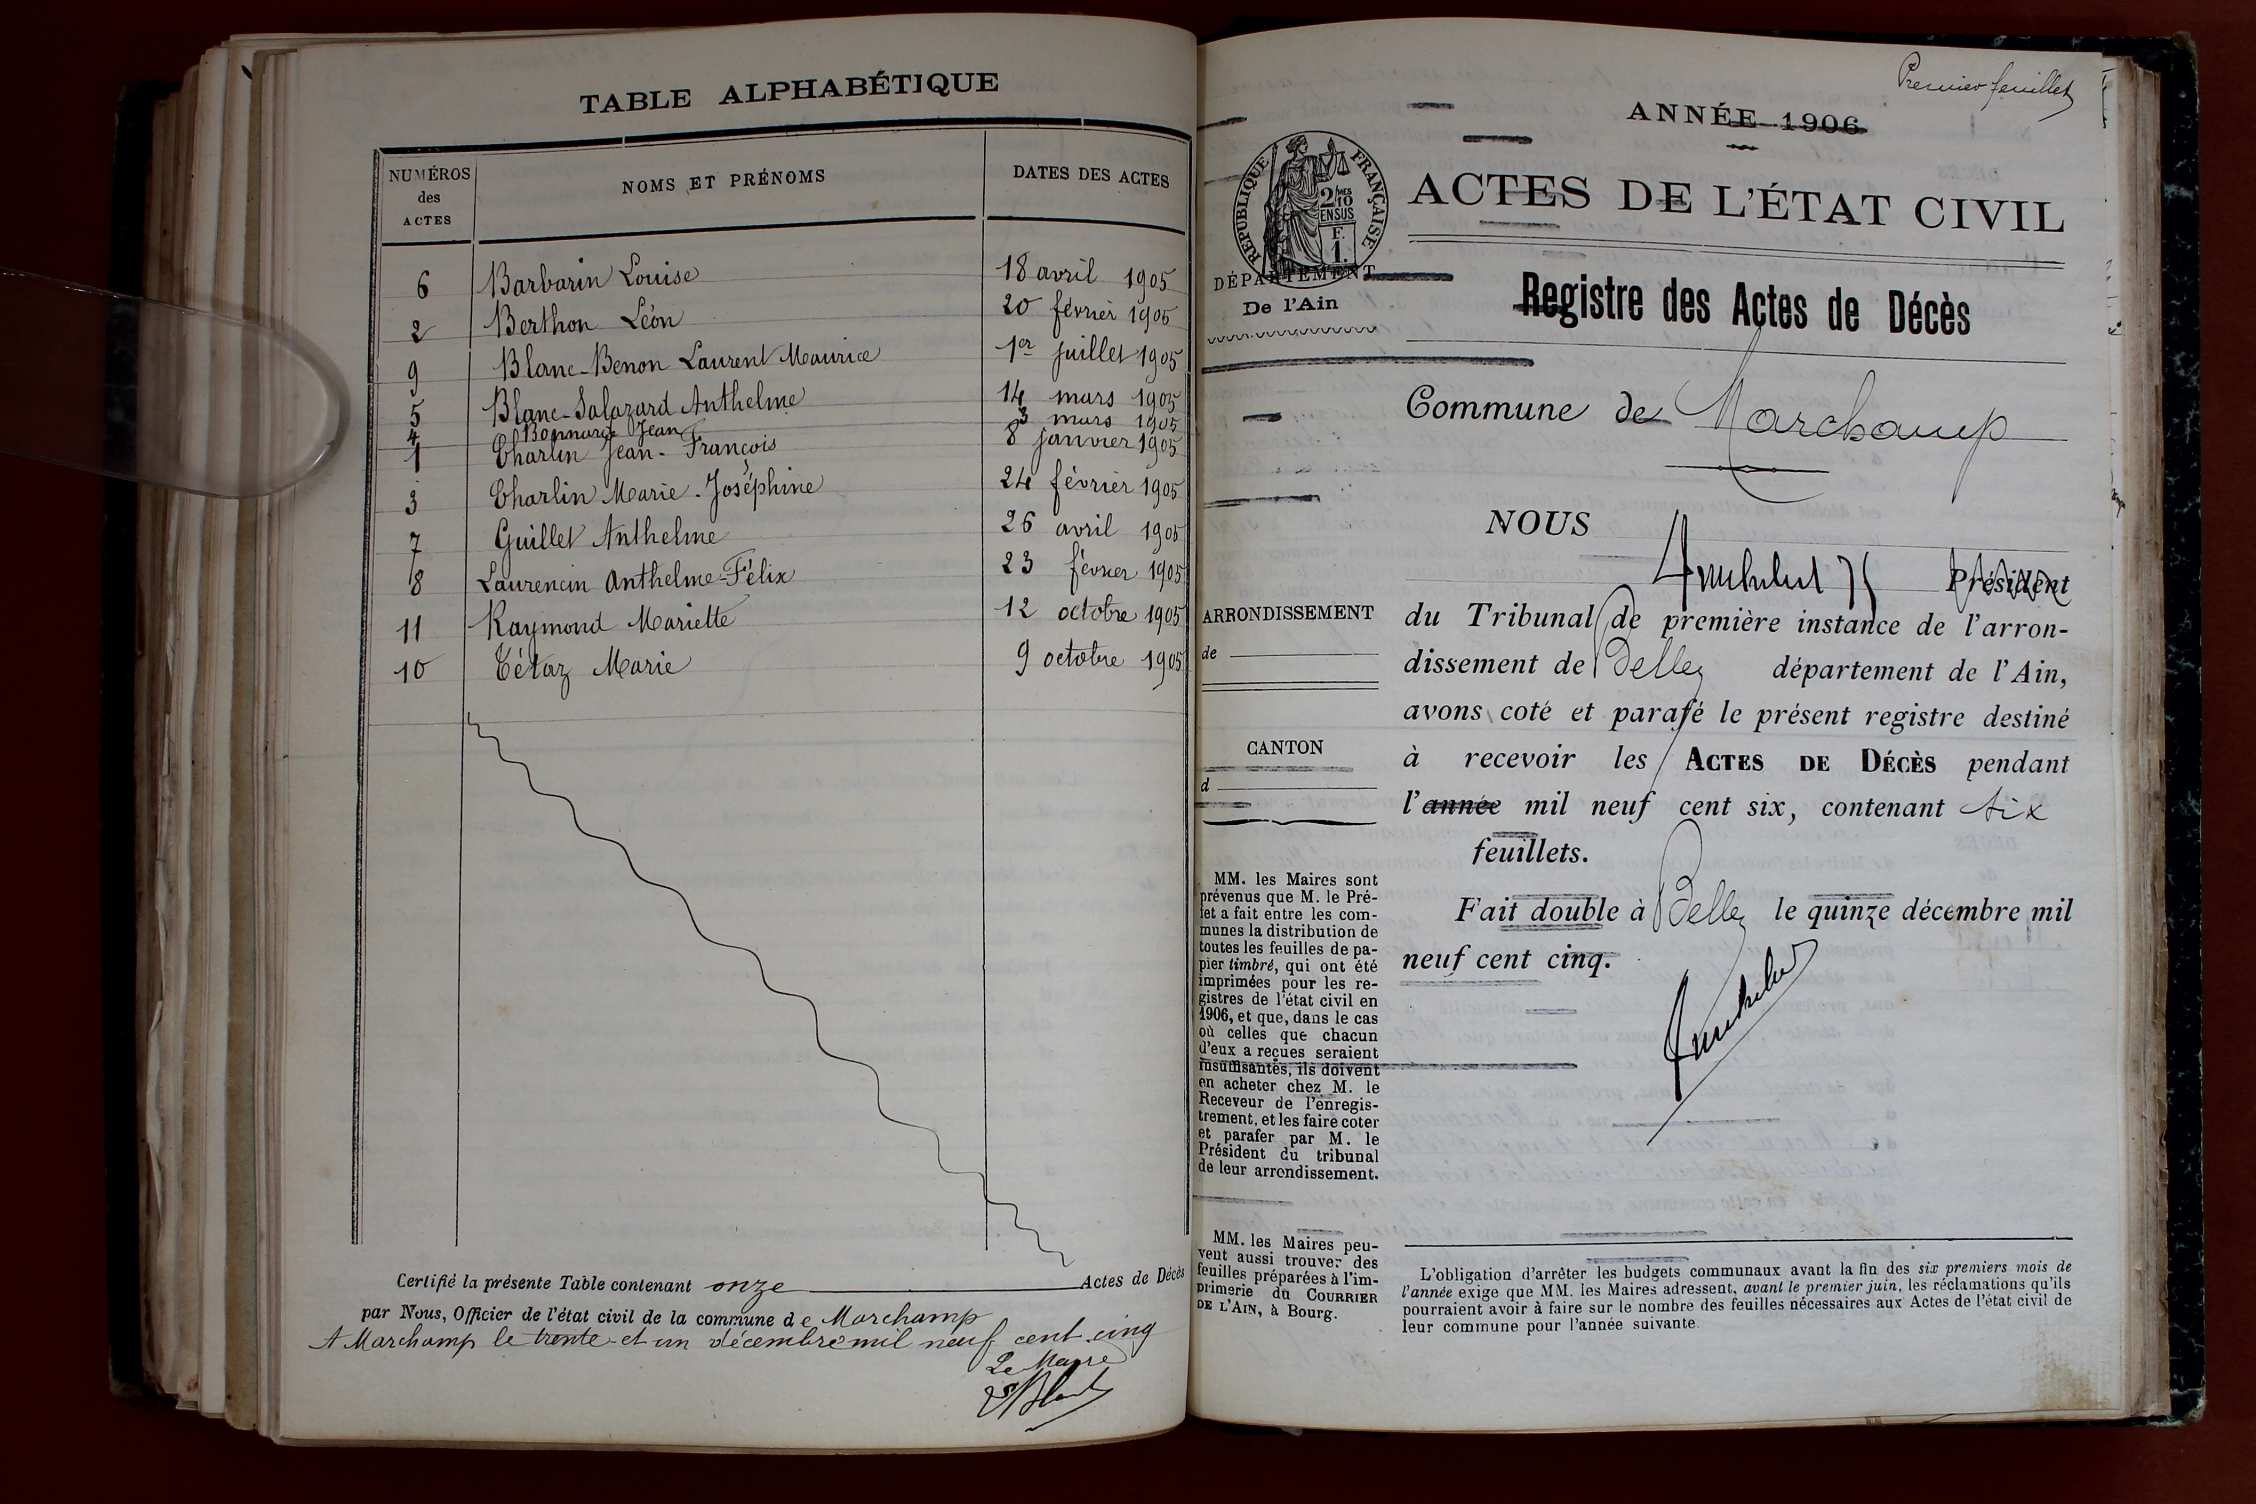 TABLE ALPHABÉTIQUE
NUMÉROS des ACTES NOMS ET PRÉNOMS DATES DES ACTES
6 Barbarin Louise 18 avril 1905
2 Berthon Léon 20 février 1905
9 Blanc-Benon Laurent Maurice 1er juillet 1905
5 Blanc-Salazard Anthelme 14 mars 1905
4 Bonnard Jean 3 mars 1905
1 Charlin Jean-François 8 janvier 1905
3 Charlin Marie-Joséphine 24 février 1905
7 Guillet Anthelme 26 avril 1905
8 Laurencin Anthelme-Félix 23 février 1905
11 Raymond Mariette 12 octobre 1905
10 Tétaz Marie 9 octobre 1905
Certifié la présente Table contenant onze Actes de Décès
par Nous, Officier de l'état civil de la commune de Marchamp
A Marchamp le trente-et un décembre mil neuf cent cinq
Le Maire
Premier feuillet
ANNÉE 1906
RÉPUBLIQUE FRANÇAISE
2/10 EN SUS
F. 1.
ACTES DE L'ÉTAT CIVIL
DÉPARTEMENT
De l'Ain
Registre des Actes de Décès
Commune de Marchamp
NOUS
Président
du Tribunal de première instance de l'arron-
dissement de Belley département de l'Ain,
avons coté et parafé le présent registre destiné
à recevoir les ACTES DE DÉCÈS pendant
l'année mil neuf cent six, contenant six
feuillets.
Fait double à Belley le quinze décembre mil
neuf cent cinq.
ARRONDISSEMENT
de
CANTON
d
MM. les Maires sont
prévenus que M. le Pré-
fet a fait entre les com-
munes la distribution de
toutes les feuilles de pa-
pier timbré, qui ont été
imprimées pour les re-
gistres de l'état civil en
1906, et que, dans le cas
où celles que chacun
d'eux a reçues seraient
insuffisantes, ils doivent
en acheter chez M. le
Receveur de l'enregis-
trement, et les faire coter
et parafer par M. le
Président du tribunal
de leur arrondissement.
MM. les Maires peu-
vent aussi trouver des
feuilles préparées à l'im-
primerie du COURRIER
DE L'AIN, à Bourg.
L'obligation d'arrêter les budgets communaux avant la fin des six premiers mois de
l'année exige que MM. les Maires adressent, avant le premier juin, les réclamations qu'ils
pourraient avoir à faire sur le nombre des feuilles nécessaires aux Actes de l'état civil de
leur commune pour l'année suivante.